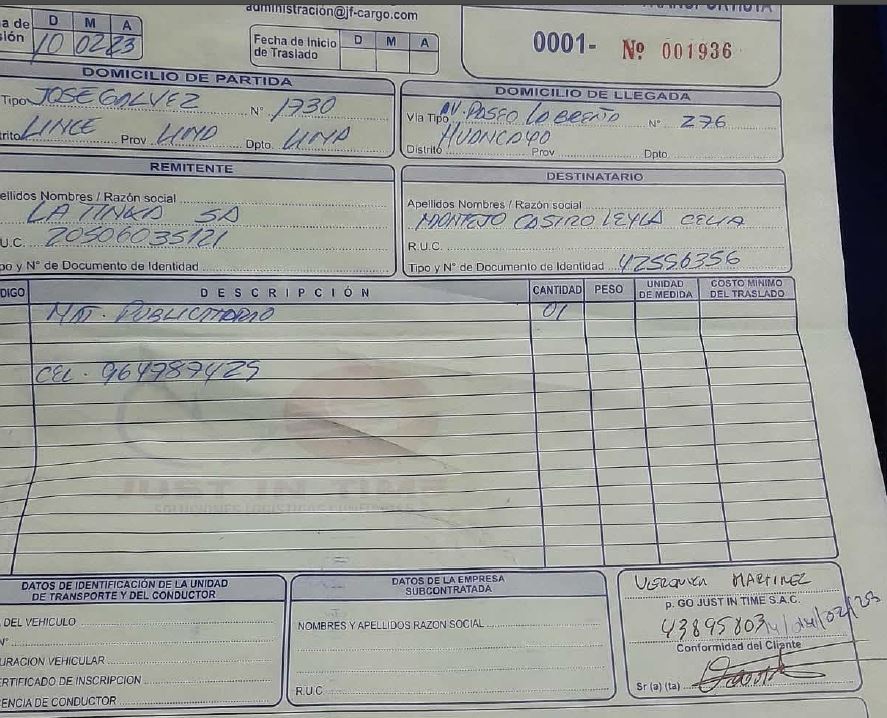 administración@jf-cargo.com
TRANSPORTISTA
a de
sión
D M A
10 02 23
Fecha de Inicio
de Traslado
D M A
0001- Nº 001936
DOMICILIO DE PARTIDA
Tipo JOSE GALVEZ Nº 1730
trito LINCE Prov LIMA Dpto. LIMA
DOMICILIO DE LLEGADA
Vía Tipo AV. PASEO LA BREÑA Nº 276
Distrito HUANCAYO Prov Dpto.
REMITENTE
ellidos Nombres / Razón social
LA TINKA SA
U.C. 20506035121
po y Nº de Documento de Identidad
DESTINATARIO
Apellidos Nombres / Razón social
MONTEJO CASTRO LEYLA CELIA
R.U.C.
Tipo y Nº de Documento de Identidad 42556356
DIGO DESCRIPCIÓN CANTIDAD PESO UNIDAD DE MEDIDA COSTO MINIMO DEL TRASLADO
MAT. PUBLICITARIO 01
CEL. 964787425
JUST IN TIME
DATOS DE IDENTIFICACIÓN DE LA UNIDAD
DE TRANSPORTE Y DEL CONDUCTOR
DEL VEHICULO
Nº
URACION VEHICULAR
ERTIFICADO DE INSCRIPCION
ENCIA DE CONDUCTOR
DATOS DE LA EMPRESA
SUBCONTRATADA
NOMBRES Y APELLIDOS RAZON SOCIAL
R.U.C.
VERONICA MARTINEZ
p. GO JUST IN TIME S.A.C.
43895803 14/02/23
Conformidad del Cliente
Sr (a) (ta)